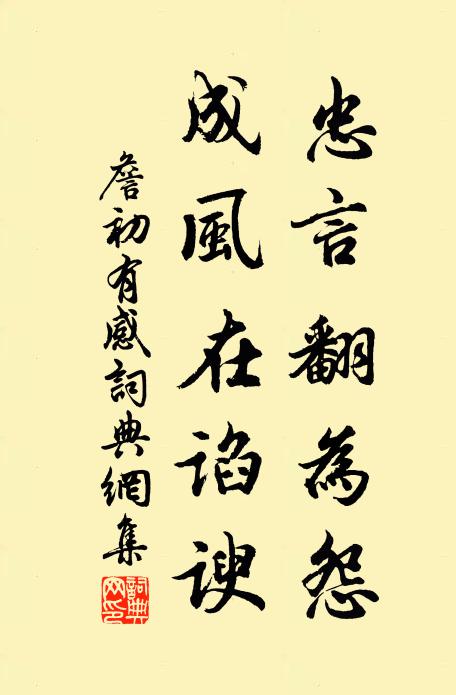 忠言翻為怨
成風在諂諛
詹初有感詞典網集
詞典網印